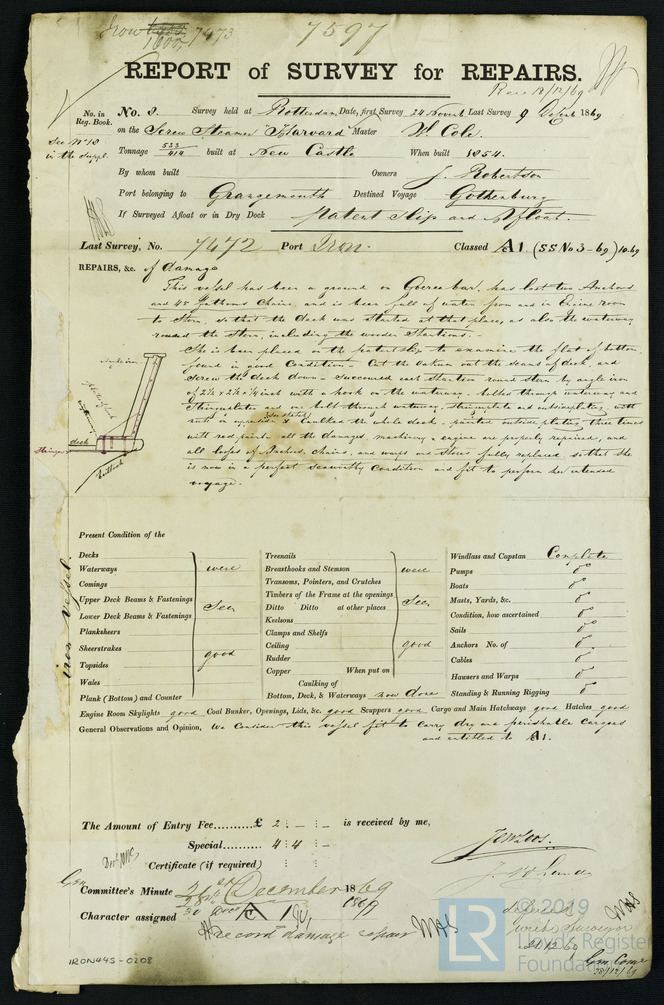 Iron 7473
7597
REPORT of SURVEY for REPAIRS.
Rec. 18/12/69
No. in Reg. Book. No. 2. Survey held at Rotterdam Date, first Survey 24 Novemb. Last Survey 9 Decbr 1869
See No 18 in the suppl.
on the Screw Steamer "Harvard" Master W. Cole.
Tonnage 533/414 built at New Castle When built 1854.
By whom built Owners J. Robertson
Port belonging to Grangemouth Destined Voyage Gothenburg
If Surveyed Afloat or in Dry Dock Patent Slip and Afloat.
Last Survey, No. 7472 Port Iron. Classed A1. (SS No 3-69) 10.69
REPAIRS, &c. of damage
This vessel has been a ground on Goeree bar, has lost two Anchors
and 45 fathoms Chain, and is been full of water from and in Engine room
to Stern, so that the deck was started at that place, as also the waterway
round the Stern, including the wooden Stantions.
She is been placed on the patentslip to examine the flat of bottom,
found in good Condition - Cut the oakum out the seams of deck, and
Screw the deck down - succoured each Stantion round Stern by angle iron
of 2½ x 2½ x ¼ inch with a hook on the waterway - bolted through waterway and
Stringerplate and one bolt through waterway, stringerplate and outsideplating with
nuts on (see sketch) & Caulked the whole deck - painted outside plating three times
with red paint - all the damaged machinery & engine are properly repaired, and
all losses of Anchors, Chains, and warps and Stores fully replaced so that She
is now in a perfect seaworthy Condition and fit to perform her intended
voyage.
Angle iron
waterway
deck
Stringer
outside
iron vessel.
Present Condition of the
Decks
Waterways
Comings
Upper Deck Beams & Fastenings
Lower Deck Beams & Fastenings
Planksheers
Sheerstrakes
Topsides
Wales
Plank (Bottom) and Counter
were
See
good
Treenails
Breasthooks and Stemson
Transoms, Pointers, and Crutches
Timbers of the Frame at the openings
Ditto Ditto at other places
Keelsons
Clamps and Shelfs
Ceiling
Rudder
Copper When put on
Caulking of
Bottom, Deck, & Waterways now done
were
See
good
Windlass and Capstan Complete
Pumps do
Boats do
Masts, Yards, &c. do
Condition, how ascertained do
Sails do
Anchors No. of do
Cables do
Hausers and Warps do
Standing & Running Rigging do
Engine Room Skylights good Coal Bunker, Openings, Lids, &c. good Scuppers good Cargo and Main Hatchways good Hatches good
General Observations and Opinion, We Consider this vessel fit to carry dry and perishable Cargoes
and entitled to A1.
The Amount of Entry Fee.......... £ 2 : - : - is received by me,
Special.......... 4 : 4 : -
Certificate (if required)
Committee's Minute 21st December 1869
Character assigned
Record damage repair
21.12.69
28/12/69
IRON445-0208
LR
© 2019
Lloyd's Register
Foundation